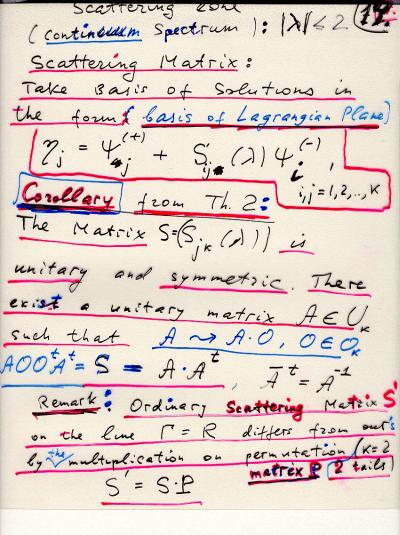 Scattering Zone
(continuum Spectrum): |λ| ≤ 2
Scattering Matrix:
Take Basis of Solutions in
the form (basis of Lagrangian Plane)
η_j = Ψ_j^(+) + S_ij(λ) Ψ_i^(-),
i,j=1,2,..,K
Corollary from Th. 2:
The Matrix S=(S_jk(λ)) is
unitary and symmetric. There
exist a unitary matrix A∈U_K
such that A ⇝ A·O, O∈O_K
AOO^tA^t = S = A·A^t, Ā^t = A^-1
Remark: Ordinary Scattering Matrix S'
on the line Γ = R differs from our's
by the multiplication on permutation (K=2
matrix P 2 tails)
S' = S·P